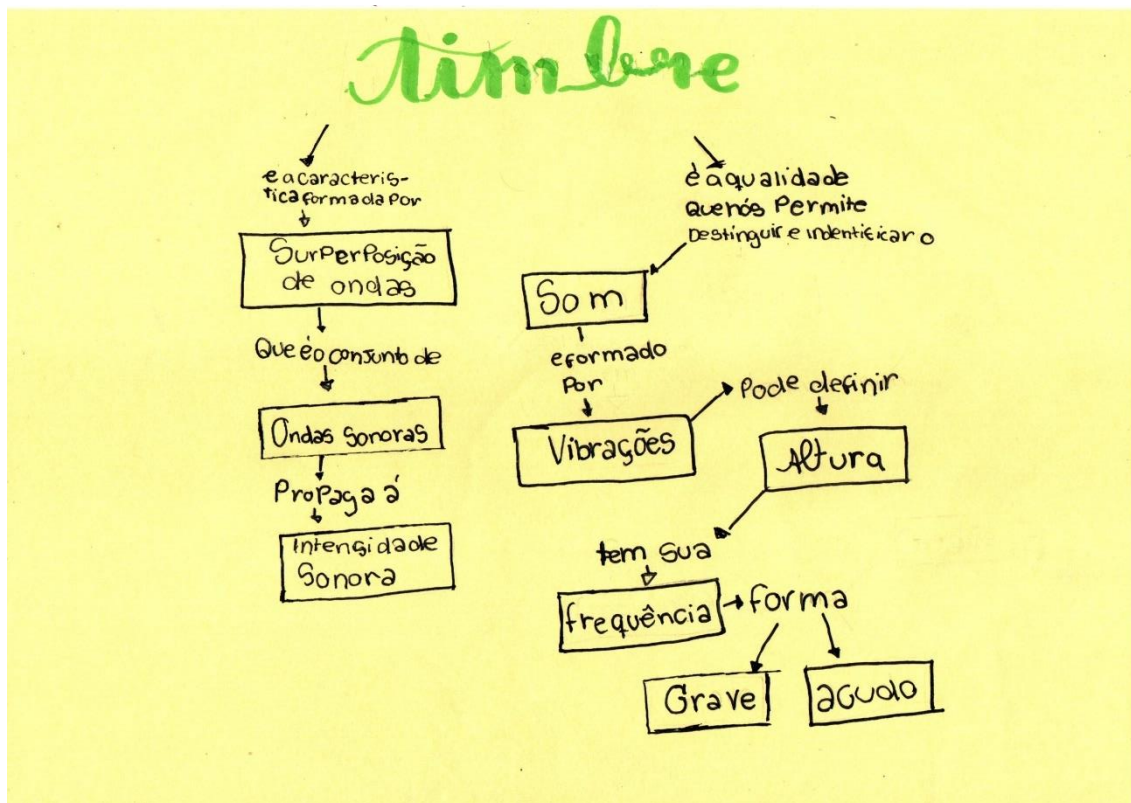 timbre
e a caracteris-
tica formada por
Surperposição
de ondas
Que é o conjunto de
Ondas sonoras
Propaga á
Intensidade
Sonora
é a qualidade
Que nós Permite
Destinguir e indentificar o
Som
e formado
Por
Vibrações
Pode definir
Altura
tem sua
frequência
forma
Grave
agudo